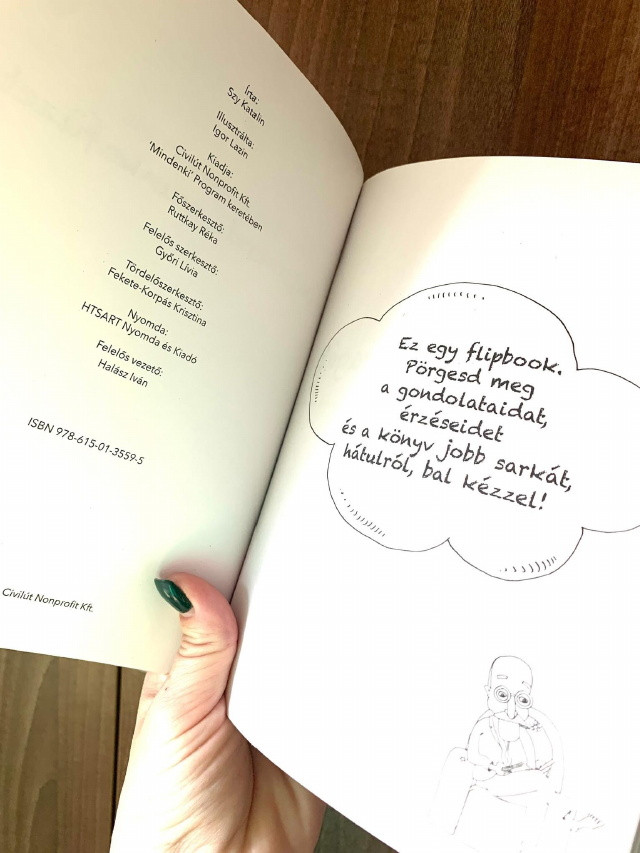 Írta:
Szy Katalin
Illusztrálta:
Igor Lazin
Kiadja:
Civilút Nonprofit Kft.
'Mindenki' Program keretében
Főszerkesztő:
Ruttkay Réka
Felelős szerkesztő:
Győri Lívia
Tördelőszerkesztő:
Fekete-Korpás Krisztina
Nyomda:
HTSART Nyomda és Kiadó
Felelős vezető:
Halász Iván
ISBN 978-615-01-3559-5
Civilút Nonprofit Kft.
Ez egy flipbook.
Pörgesd meg
a gondolataidat,
érzéseidet
és a könyv jobb sarkát,
hátulról, bal kézzel!